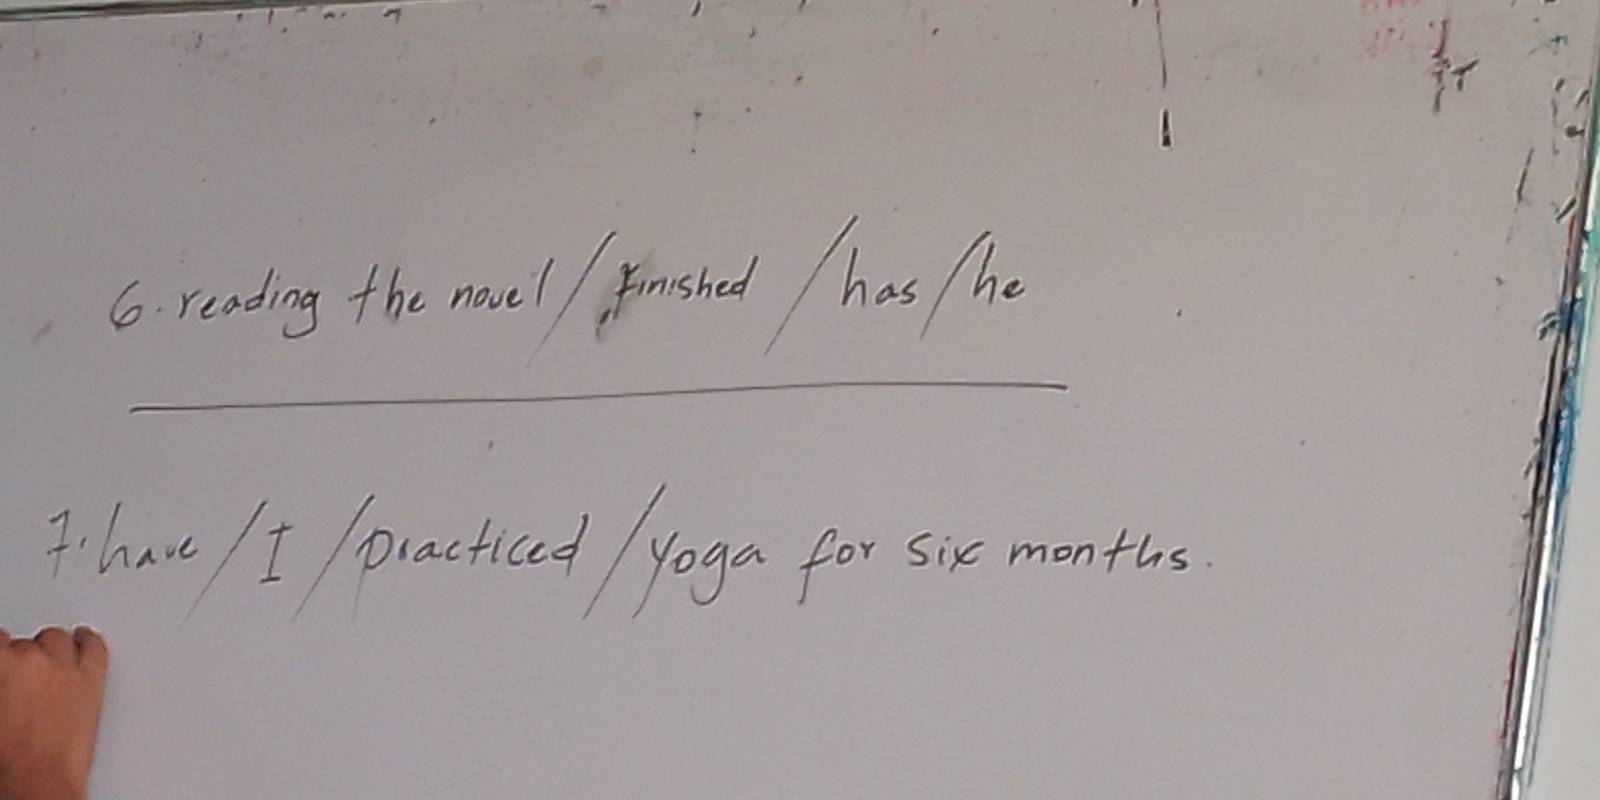 6. reading the novel / finished / has / he
7. have / I / practiced / yoga for six months.